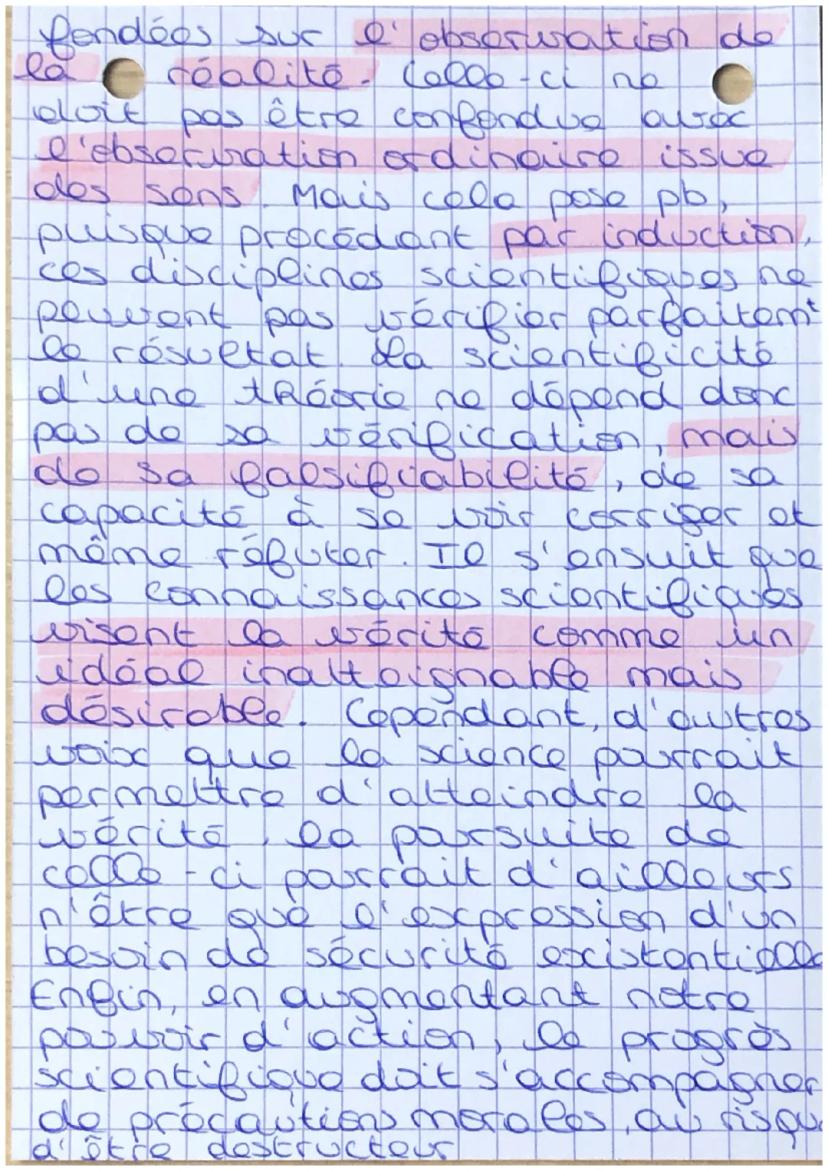 fondées sur l'observation de
la réalité. Celle-ci ne
doit pas être confondue avec
l'observation ordinaire issue
des sens. Mais cela pose pb,
puisque procédant par induction,
ces disciplines scientifiques ne
peuvent pas vérifier parfaitemt
le résultat. La scientificité
d'une théorie ne dépend donc
pas de sa vérification, mais
de sa falsifiabilité, de sa
capacité à se voir corriger et
même réfuter. Il s'ensuit que
les connaissances scientifiques
visent la vérité comme un
idéal inatteignable mais
désirable. Cependant, d'autres
voix que la science pourrait
permettre d'atteindre la
vérité, la poursuite de
celle-ci pourrait d'ailleurs
n'être que l'expression d'un
besoin de sécurité existentielle
Enfin, en augmentant notre
pouvoir d'action, le progrès
scientifique doit s'accompagner
de précautions morales, au risqu
d'être destructeur